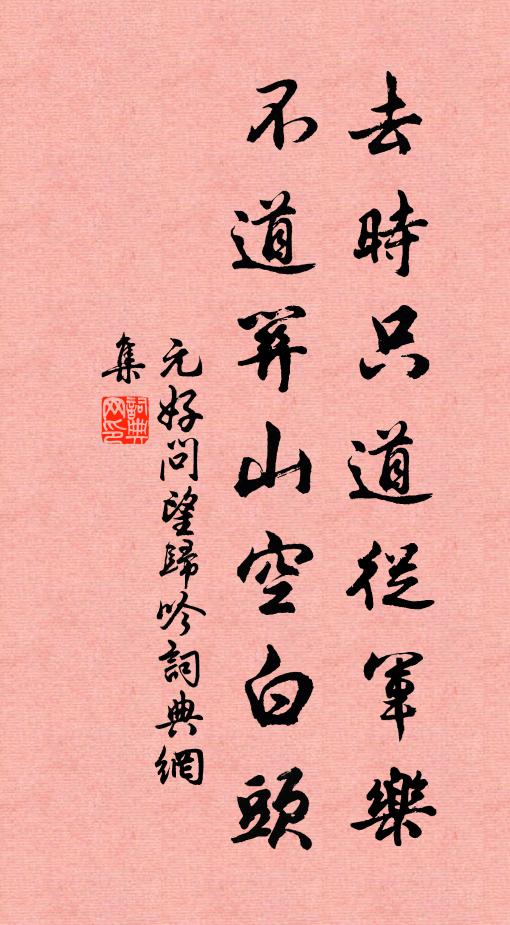 去時只道從軍樂
不道關山空白頭
元好問望歸吟詞典網
集
詞典
网印